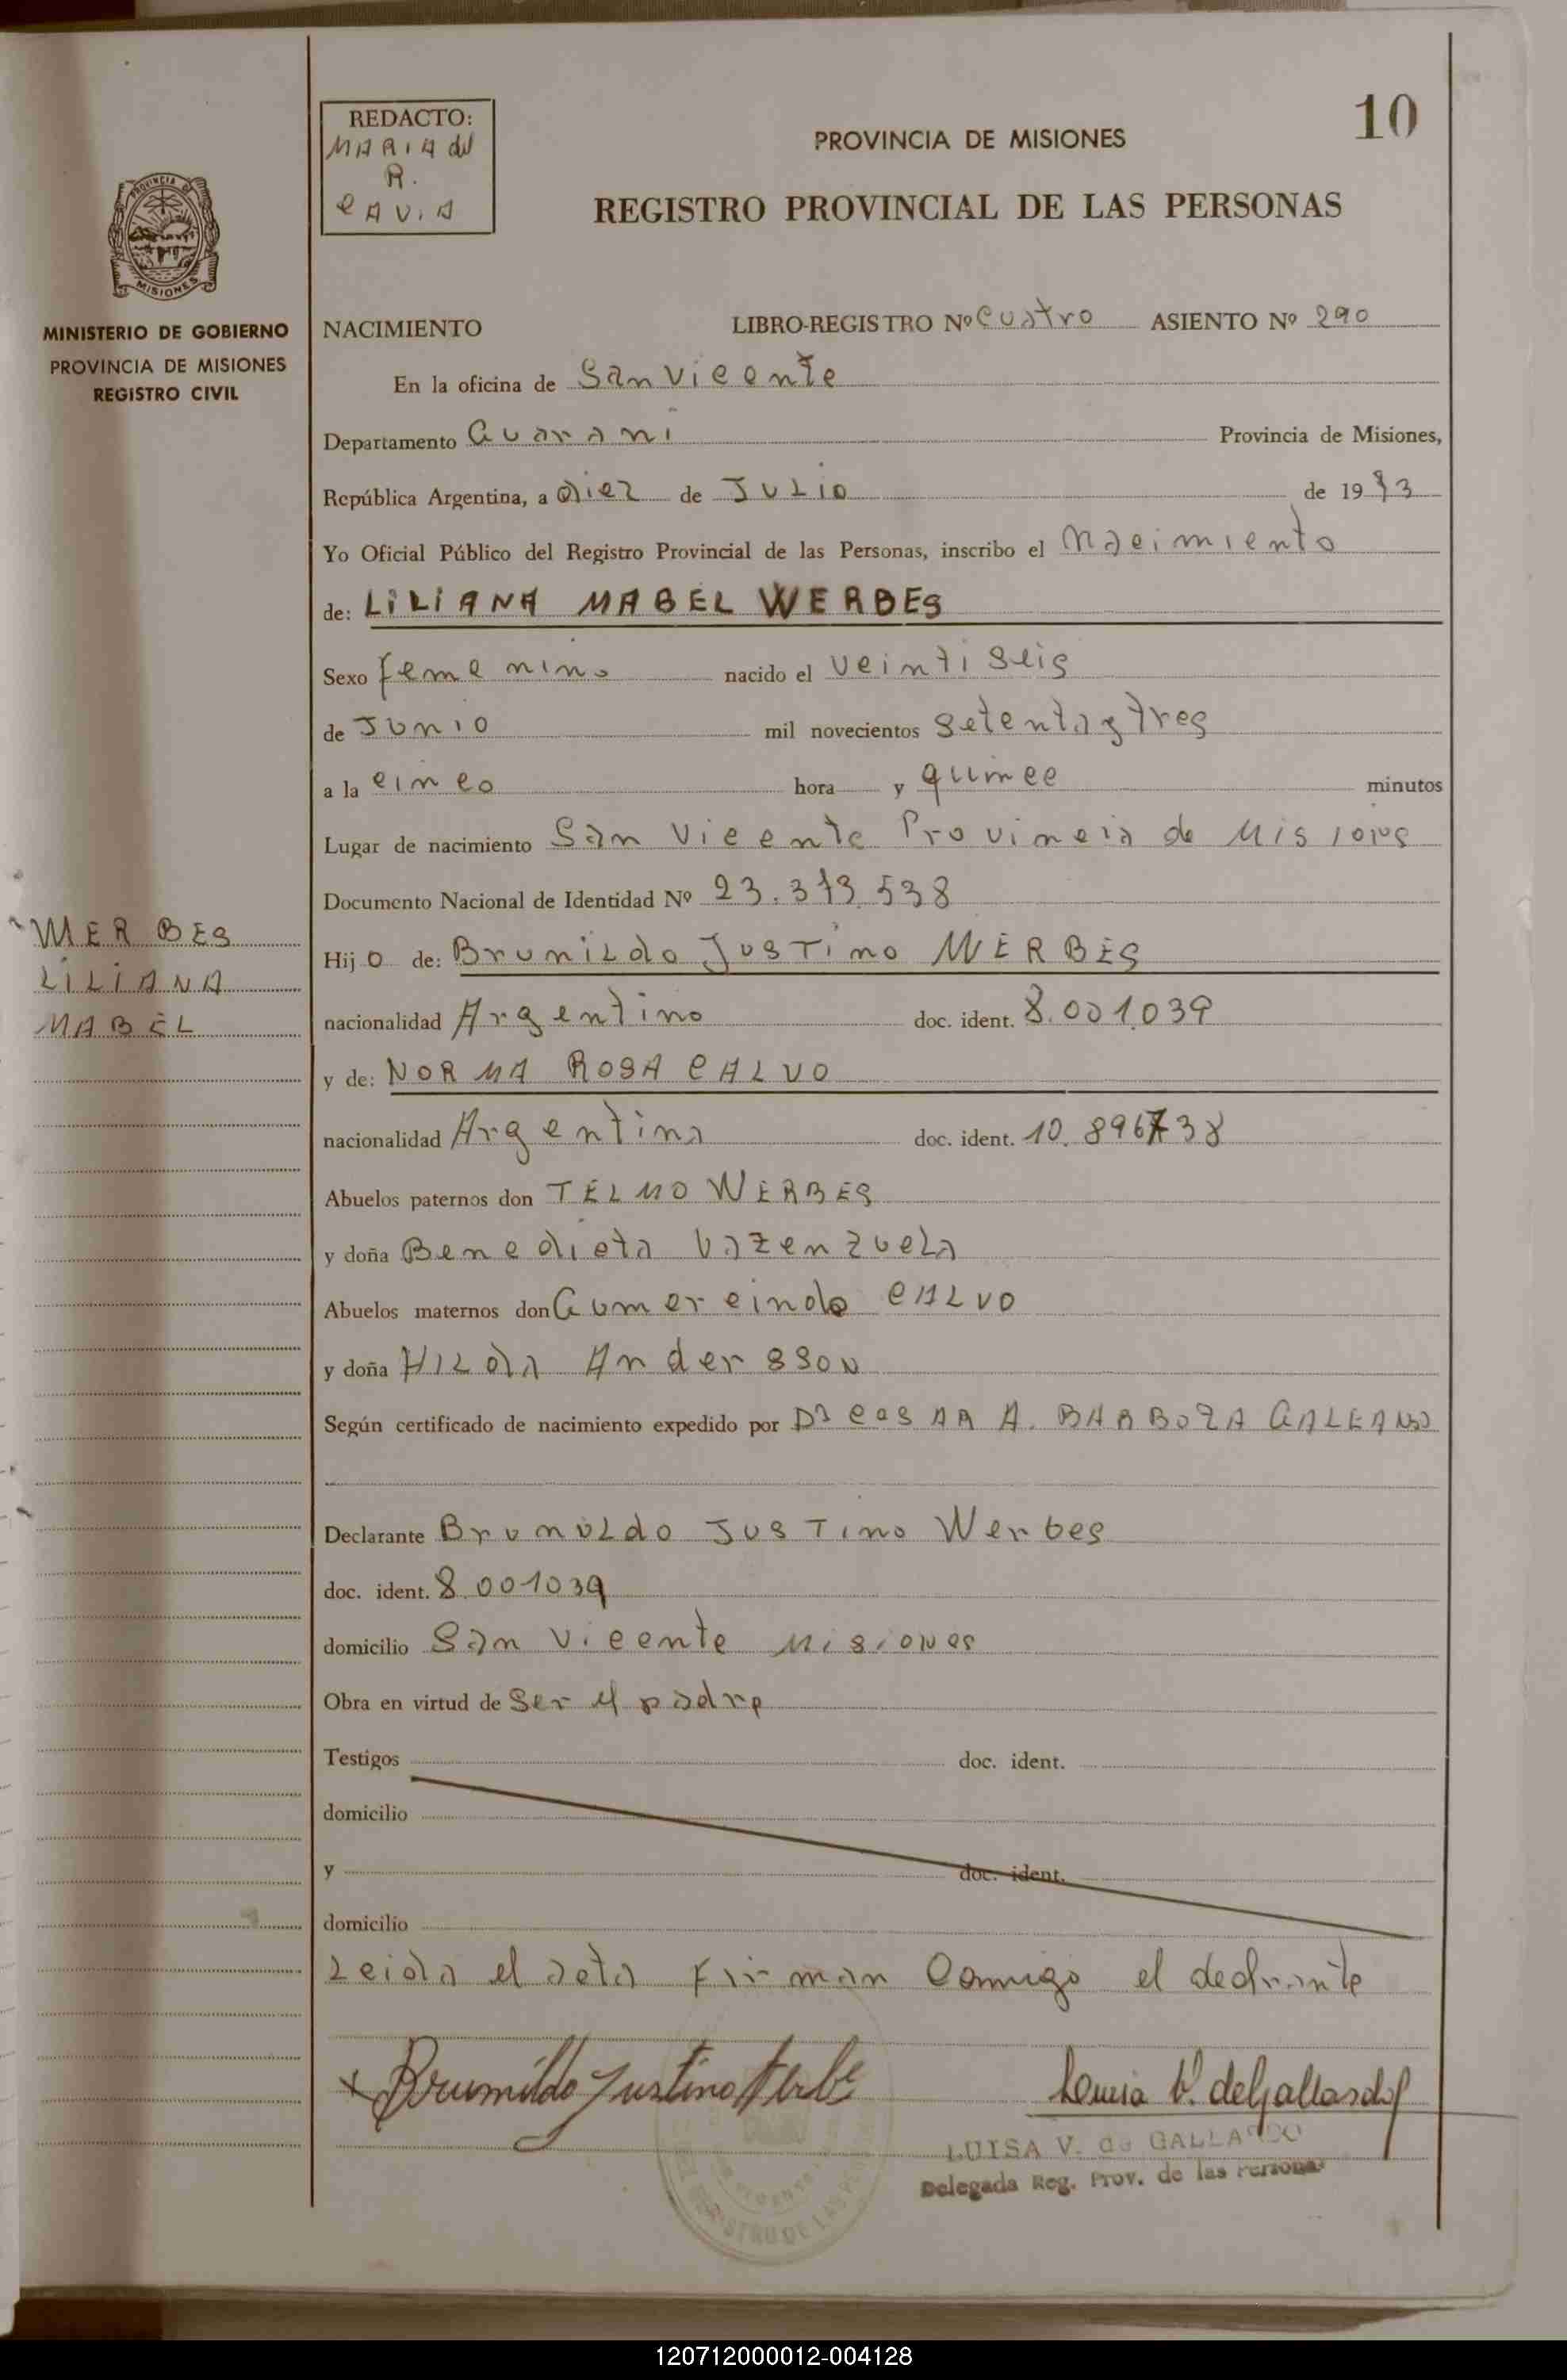 REDACTO:
MARIA del
R.
CAVIA
10
PROVINCIA DE MISIONES
REGISTRO PROVINCIAL DE LAS PERSONAS
PROVINCIA DE
MISIONES
MINISTERIO DE GOBIERNO
PROVINCIA DE MISIONES
REGISTRO CIVIL
NACIMIENTO LIBRO-REGISTRO Nº Cuatro ASIENTO Nº 290
En la oficina de San Vicente
Departamento Guarani Provincia de Misiones,
República Argentina, a diez de JULIO de 1973
Yo Oficial Público del Registro Provincial de las Personas, inscribo el Nacimiento
de: LILIANA MABEL WERBES
Sexo femenino nacido el veinti seis
de Junio mil novecientos setenta y tres
a la cinco hora y quince minutos
Lugar de nacimiento San Vicente Provincia de Misiones
Documento Nacional de Identidad Nº 23.373.538
WERBES
LILIANA
MABEL
Hijo de: Brunildo Justino WERBES
nacionalidad Argentino doc. ident. 8.001.039
y de: NORMA ROSA CALVO
nacionalidad Argentina doc. ident. 10.896738
Abuelos paternos don TELMO WERBES
y doña Benedicta Vazenzuela
Abuelos maternos don Gumercindo CALVO
y doña HILDA Andersson
Según certificado de nacimiento expedido por Dr CESAR A. BARBOZA GALEANO
Declarante Brunildo Justino Werbes
doc. ident. 8.001039
domicilio San Vicente Misiones
Obra en virtud de ser el padre
Testigos doc. ident.
domicilio
y doc. ident.
domicilio
Leida el acta firman Conmigo el declarante
x Brunildo Justino Werbe
Louisa V. de Gallardo
LUISA V. de GALLARDO
Delegada Reg. Prov. de las Personas
120712000012-004128